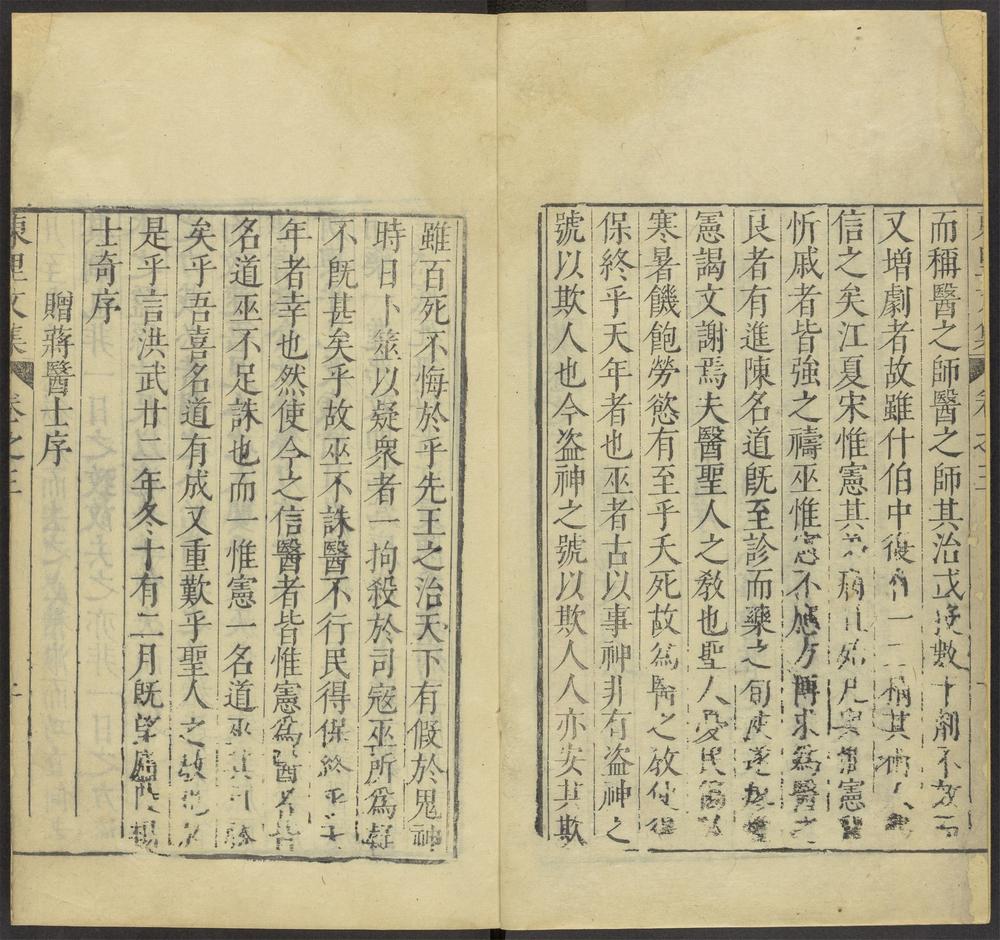 而稱醫之師醫之師其治或投數十劑不效而
又增劇者故雖什伯中復有一二稱其神人
信之矣江夏宋惟憲其 病且死凡與惟憲
忻戚者皆強之禱巫惟憲不應方博求為醫之
良者有進陳名道既至診而藥之旬
憲謁文謝焉夫醫聖人之教也聖人愛民
寒暑饑飽勞慾有至乎夭死故為醫之教使得
保終乎天年者也巫者古以事神非有盗神之
號以欺人也今盗神之號以欺人人亦安其欺
雖百死不悔於乎先王之治天下有假於鬼神
時日卜筮以疑衆者一拘殺於司寇巫所為疑
不既甚矣乎故巫不誅醫不行民得保終乎天
年者幸也然使今之信醫者皆惟憲為醫者皆
名道巫不足誅也而一惟憲一名道巫其可誅
矣乎吾喜名道有成又重歎乎聖人之教
是乎言洪武廿二年冬十有二月既望廬陵楊
士奇序
贈蔣醫士序
東里文集 卷之三